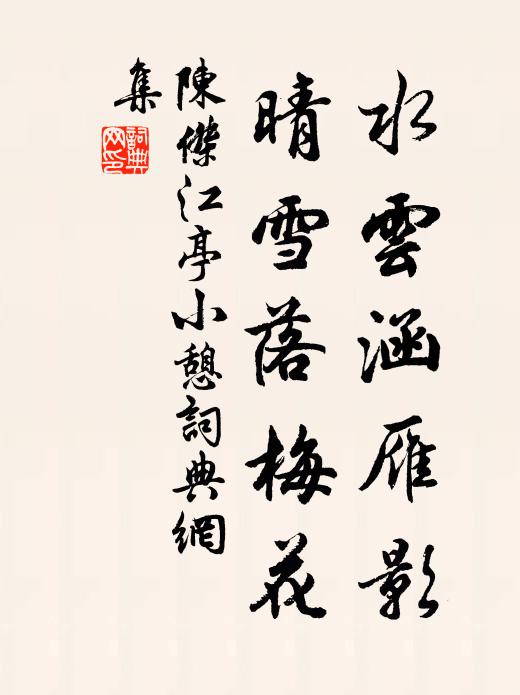 水雲涵雁影
晴雪落梅花
陳傑江亭小憩詞典網
集
詞典網印